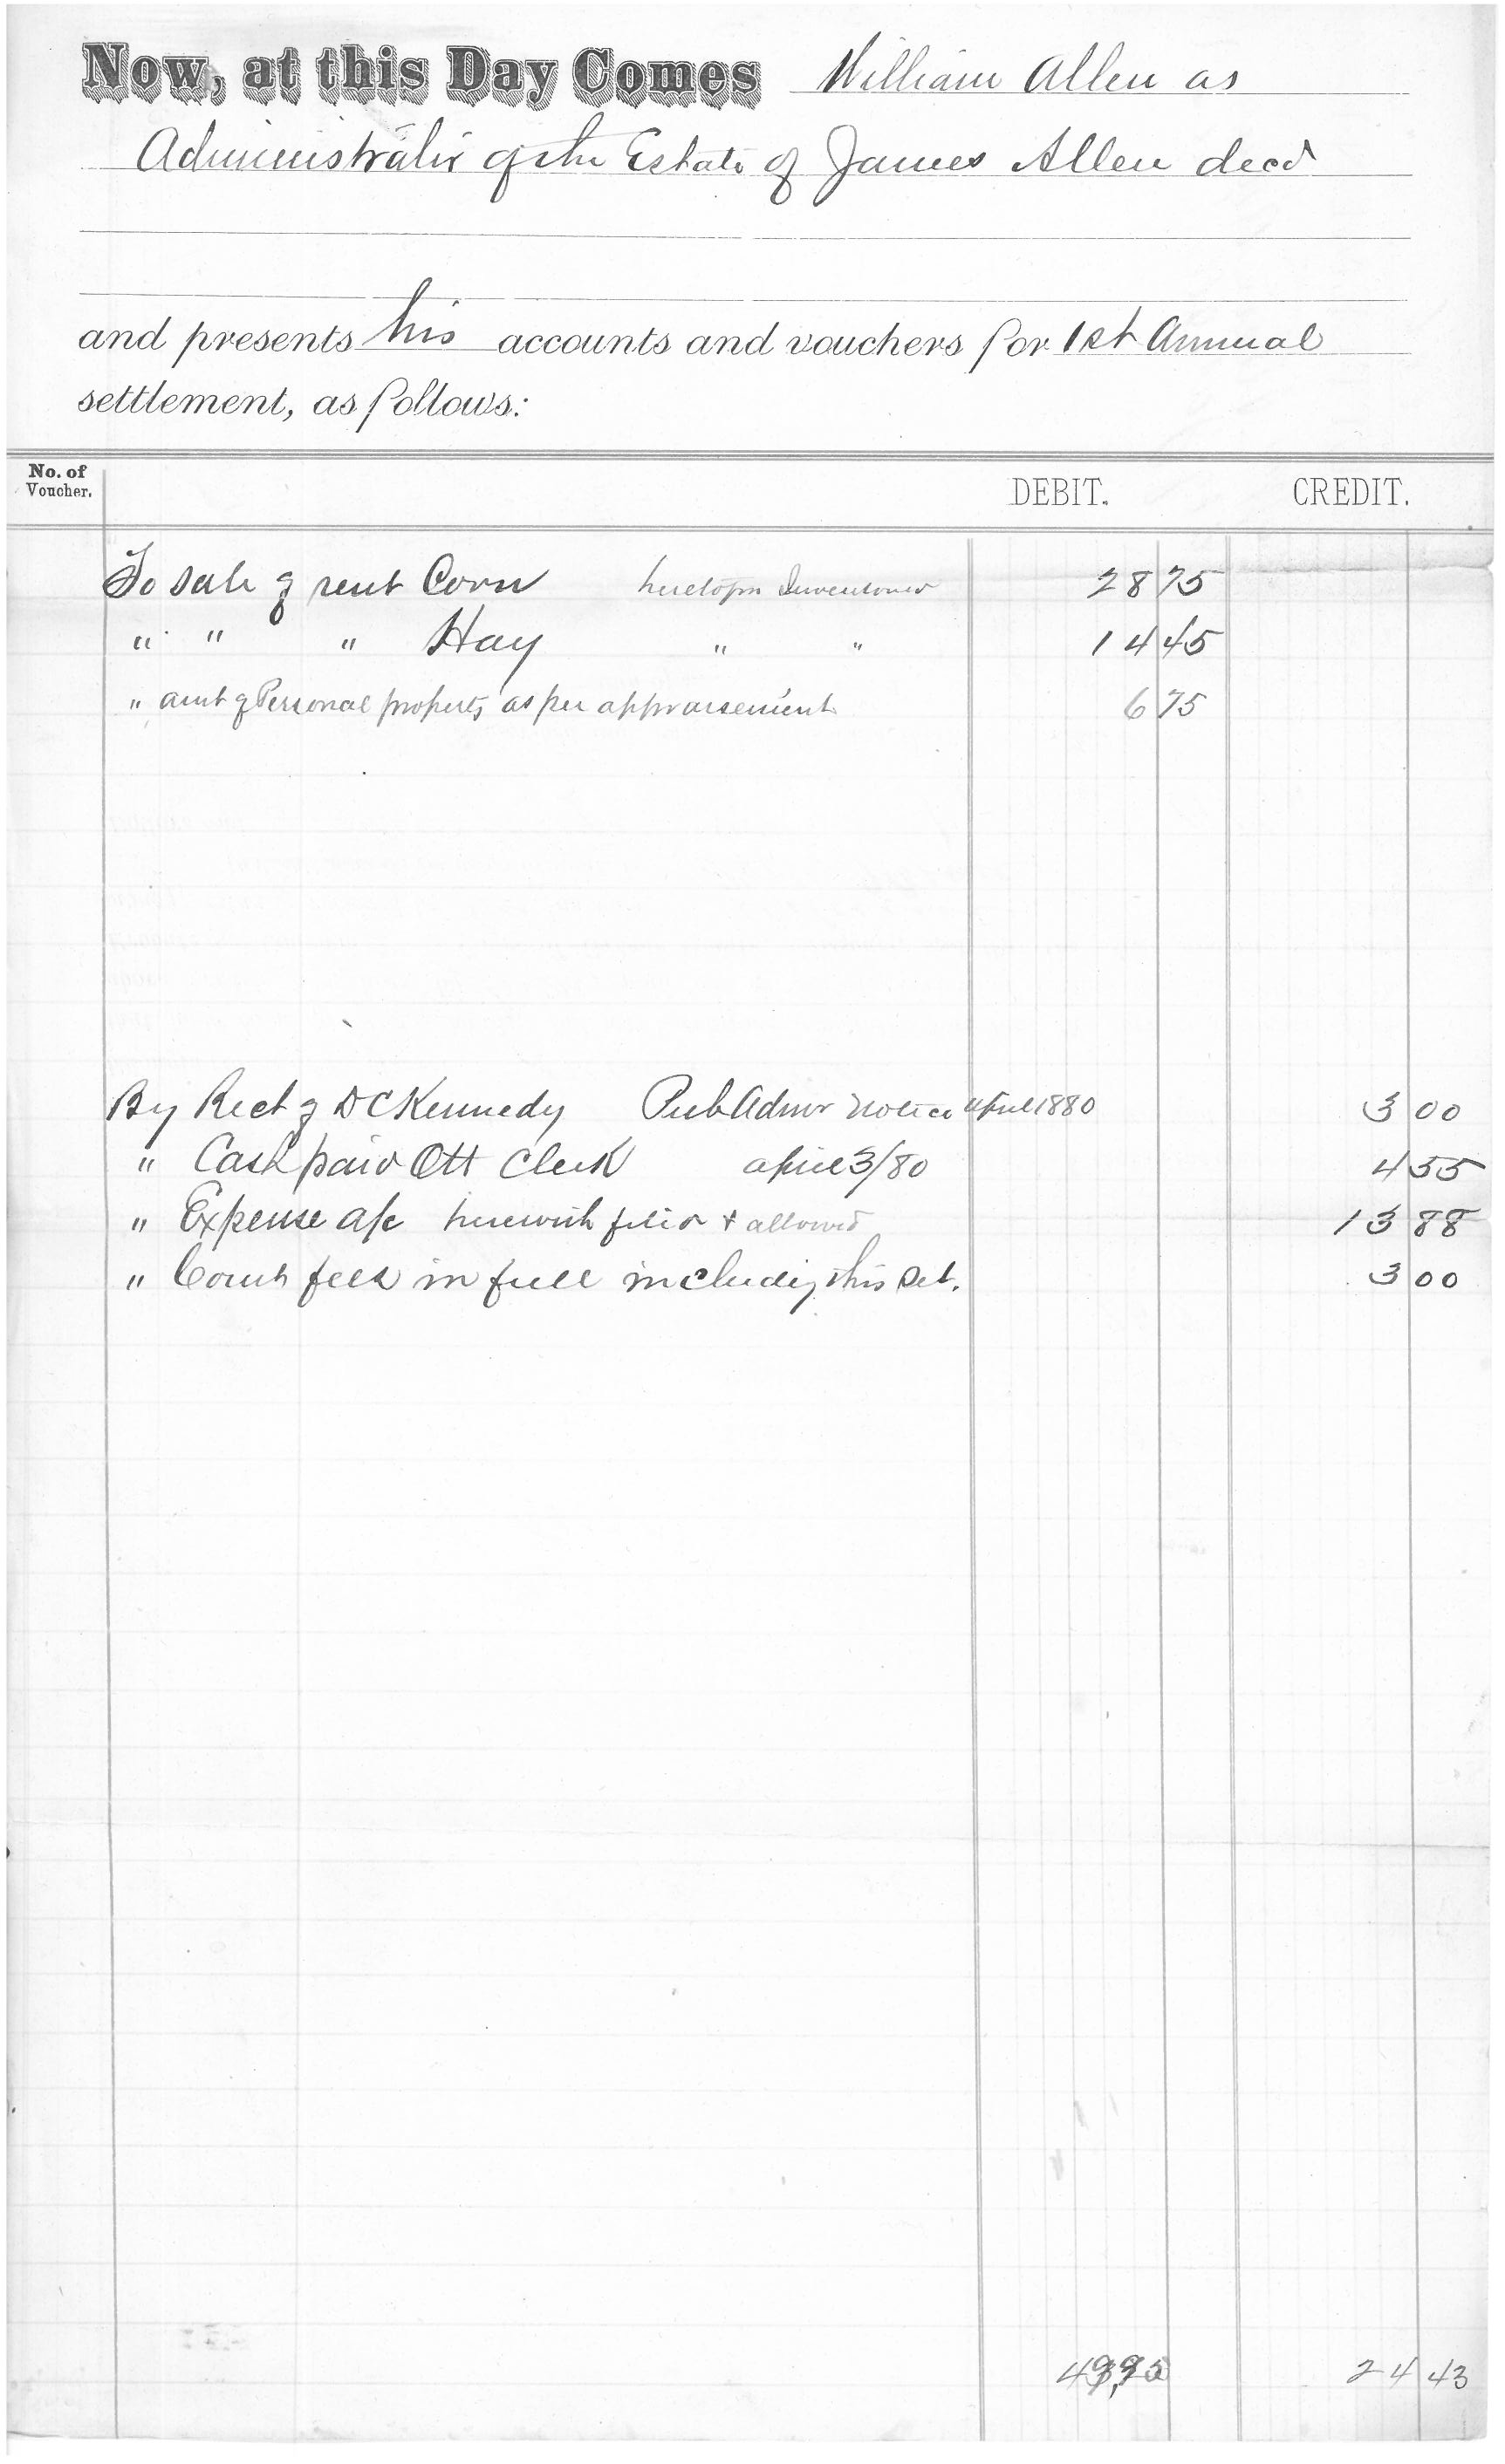 Now, at this Day Comes William Allen as
Administrator of the Estate of James Allen decd
and presents his accounts and vouchers for 1st Annual
settlement, as follows:
No. of Voucher. DEBIT. CREDIT.
To Sale of rent Corn heretofore Inventoried 28 75
" " " Hay " " 14 45
" amt of Personal property as per appraisement 6 75
By Rect of D C Kennedy Pub Admr Notice april 1880 3 00
" Cash paid Ott Clerk april 3/80 4 55
" Expense a/c herewith filed & allowed 13 88
" Court fees in full includig this Set. 3 00
49,95 24 43